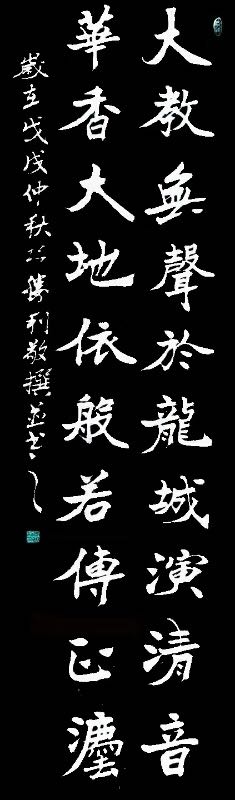 大教無聲於龍城演清音
華香大地依般若傳正灋
歲在戊戌仲秋勝利敬撰並書之